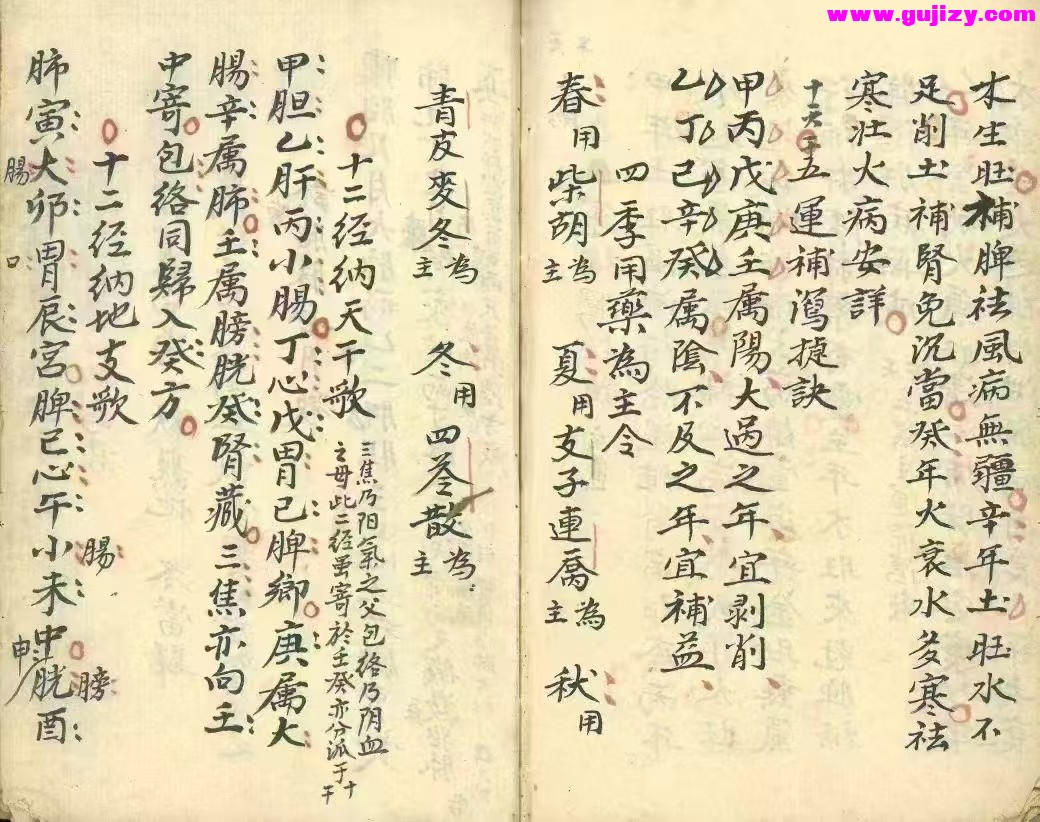 www.gujizy.com
木生旺補脾祛風病無疆辛年土旺水不
足削土補腎免沉當癸年火衰水多寒祛
寒壮火病安詳
十天干五運補瀉捷訣
甲丙戊庚壬属陽大過之年宜剥削
乙丁己辛癸属陰不及之年宜補益
四季用藥為主令
春用柴胡為主 夏用支子連喬為主 秋用
青皮麥冬為主 冬用四苓散為主
十二经纳天干歌 三焦乃阳氣之父包络乃阴血之母此二经虽寄於壬癸亦分派于十干
甲胆乙肝丙小腸丁心戊胃己脾鄉庚属大
腸辛属肺壬属膀胱癸腎藏三焦亦向壬
中寄包络同歸入癸方
十二经纳地支歌
肺寅大腸卯胃口辰宫脾巳心午小腸未申膀胱酉